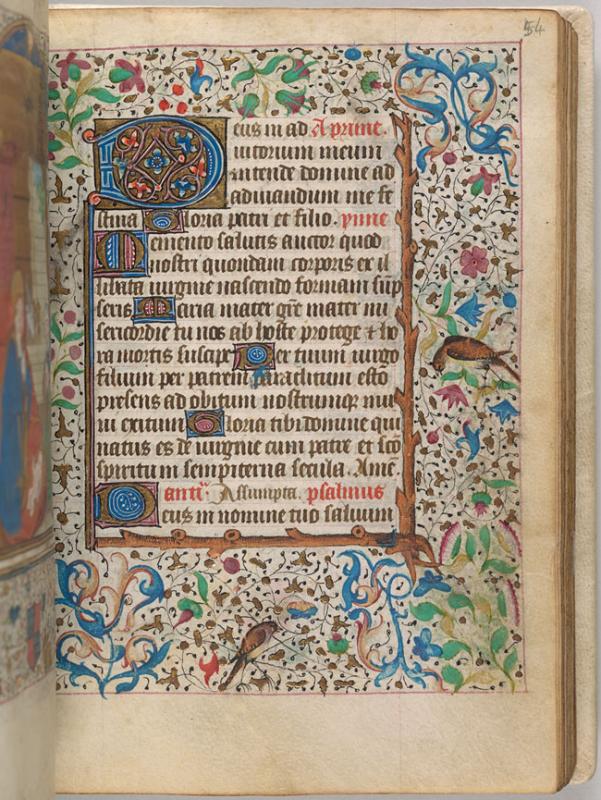 54
Deus in ad A prime.
iutorium meum
intende domine ad
adiuuandum me fe
stina Gloria patri et filio. ymne
Memento salutis auctor quod
nostri quondam corporis ex il
libata uirgine nascendo formam sūp
seris Maria mater gr̄e mater mi
sericordie tu nos ab hoste protege & ho
ra mortis suscipe Per tuum uirgo
filium per patrem paraclitum esto
presens ad obitum nostrumq; mu
ni exitum Gloria tibi domine qui
natus es de uirgine cum patre et sc̄o
spiritu in sempiterna secula. Ame.
antī. Assumpta. psalmus
Deus in nomine tuo saluum